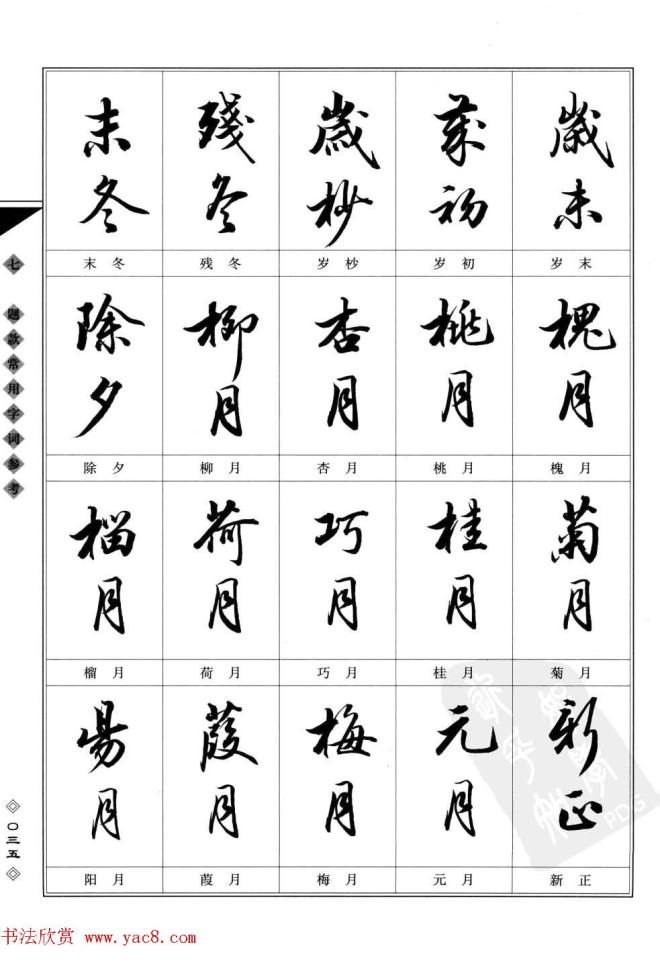 七 题款常用字词参考
末冬
末冬
殘冬
残冬
歲杪
岁杪
歲初
岁初
歲末
岁末
除夕
除夕
柳月
柳月
杏月
杏月
桃月
桃月
槐月
槐月
榴月
榴月
荷月
荷月
巧月
巧月
桂月
桂月
菊月
菊月
昜月
阳月
葭月
葭月
梅月
梅月
元月
元月
新正
新正
〇三五
PDG
书法欣赏 www.yac8.com